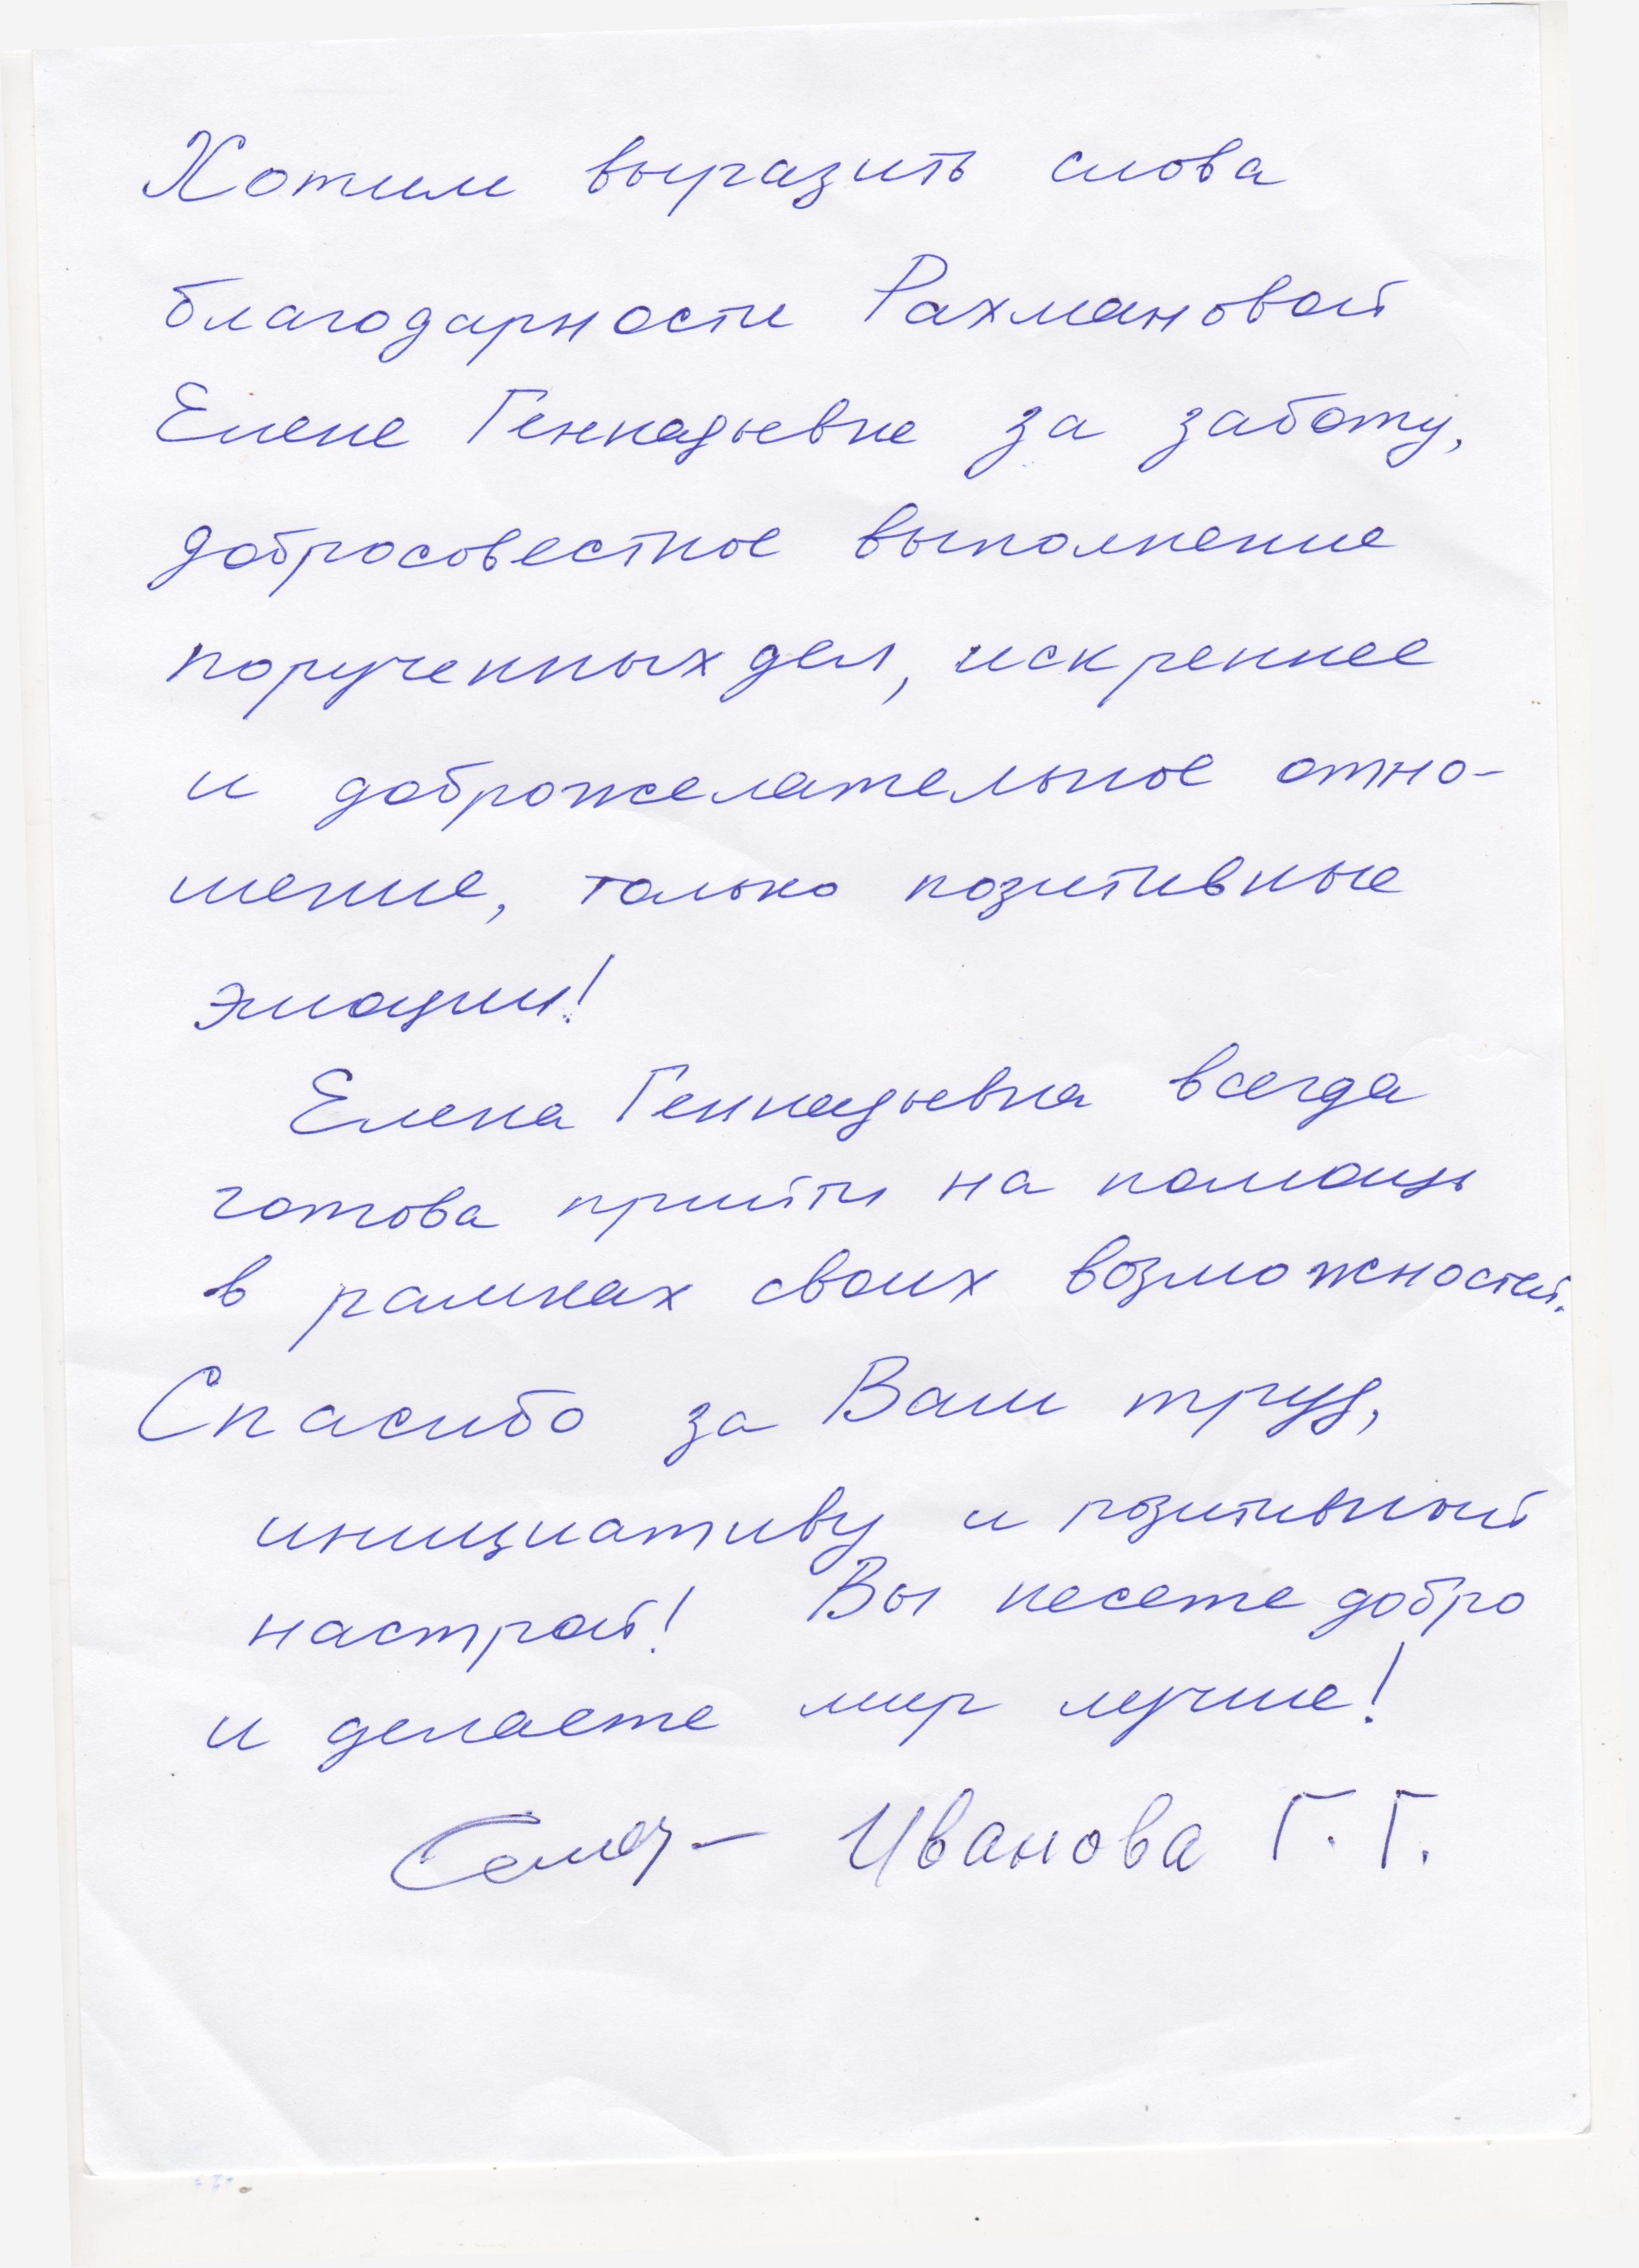 Хотим выразить слова
благодарности Рахмановой
Елене Геннадьевне за заботу,
добросовестное выполнение
порученных дел, искреннее
и доброжелательное отно-
шение, только позитивные
эмоции!
Елена Геннадьевна всегда
готова прийти на помощь
в рамках своих возможностей.
Спасибо за Ваш труд,
инициативу и позитивный
настрой! Вы несете добро
и делаете мир лучше!
Иванова Г. Г.